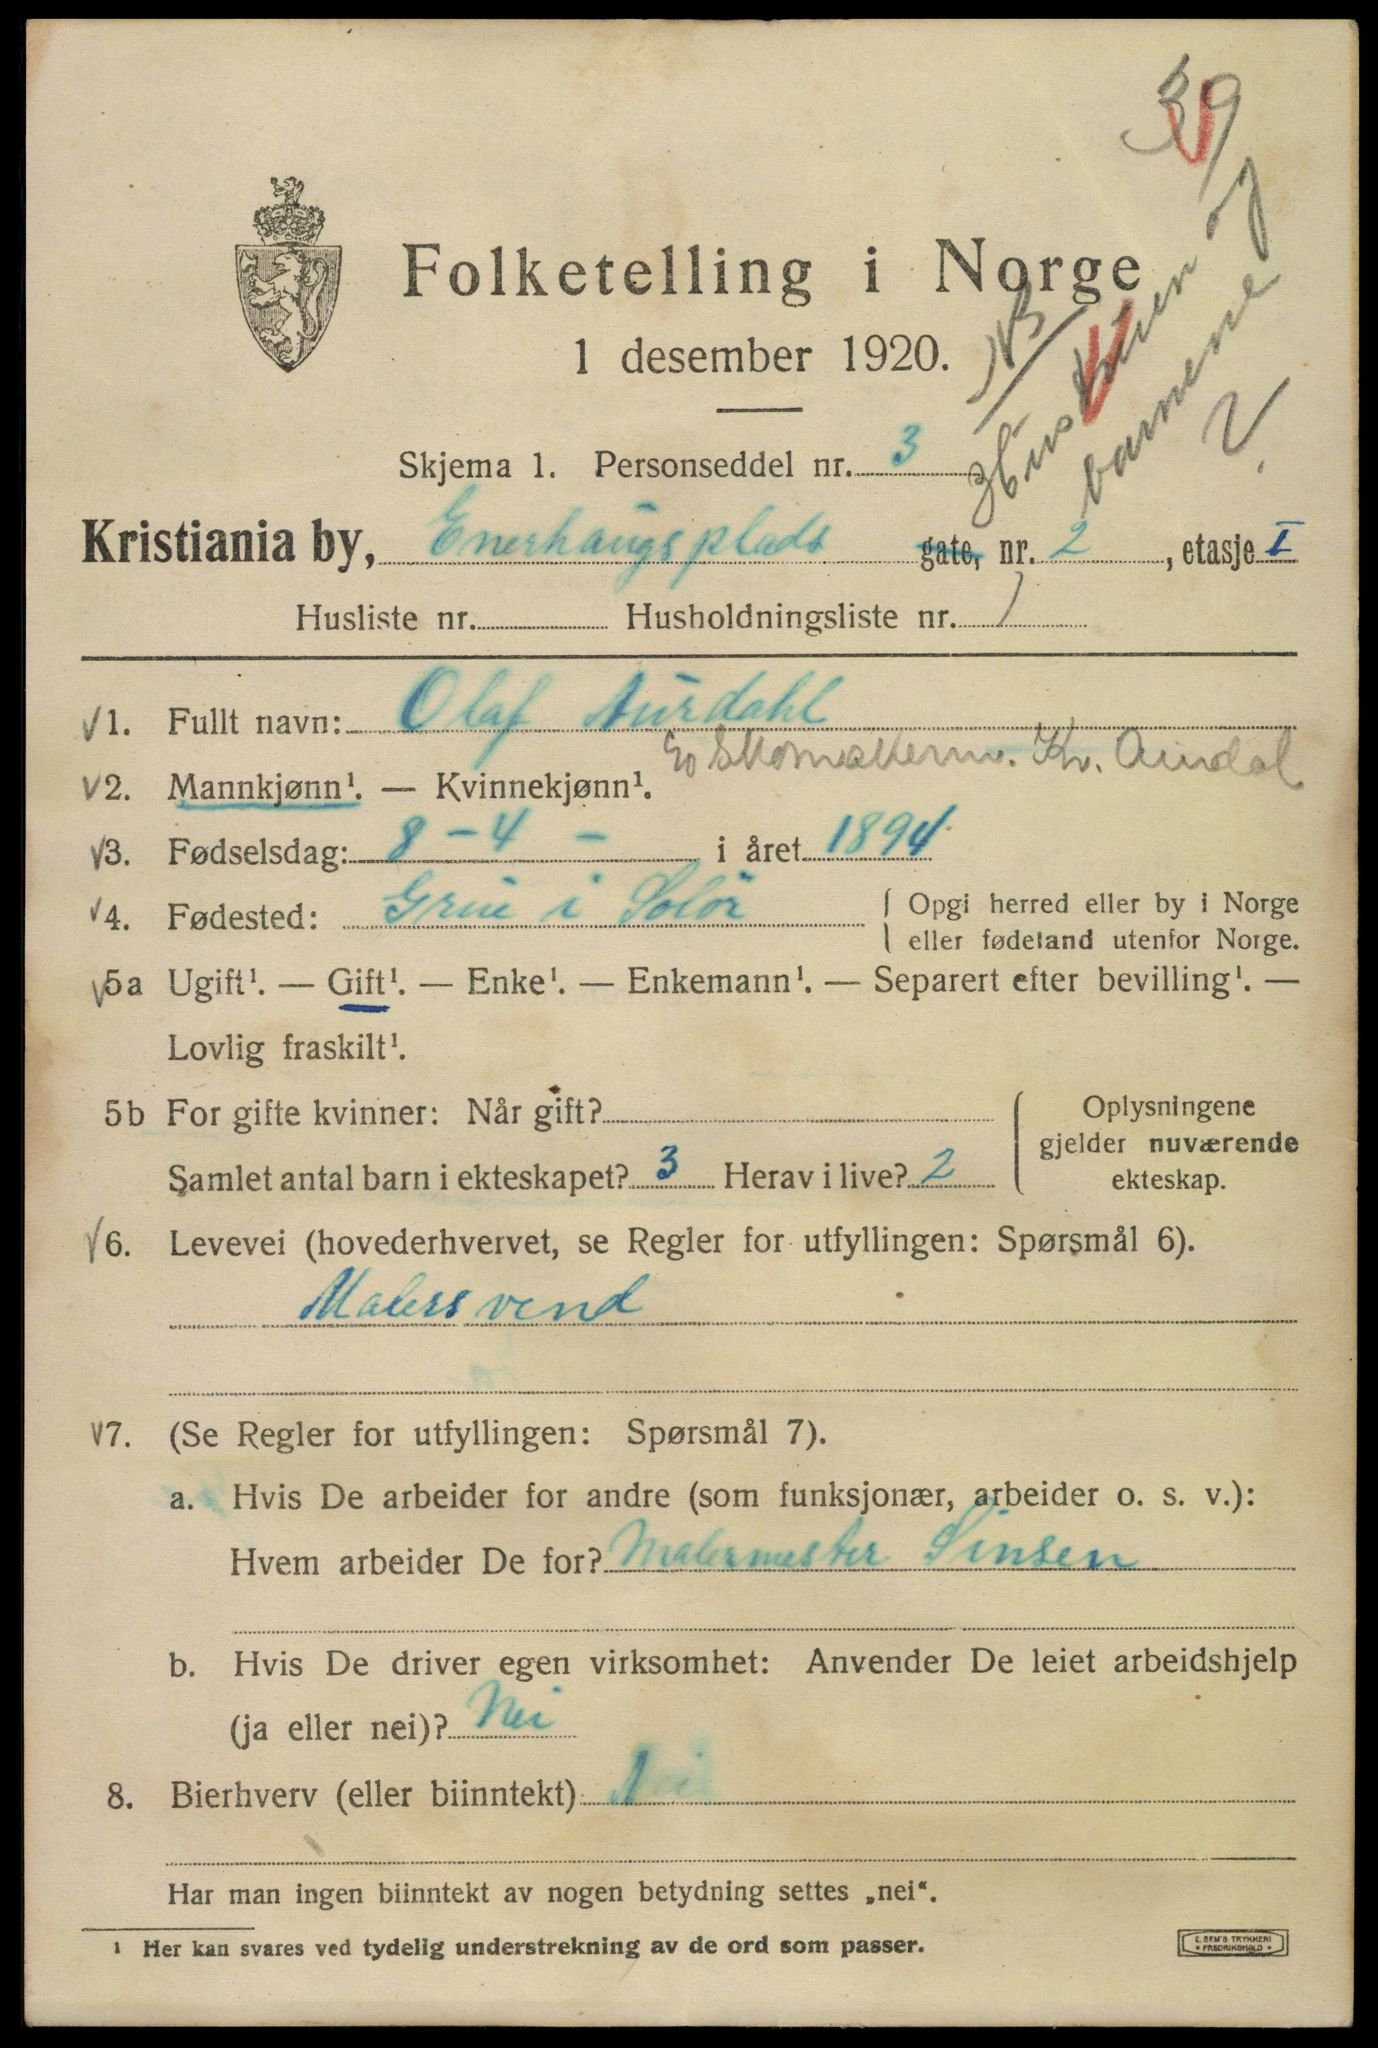 39
Folketelling i Norge
1 desember 1920.
NB
Hustruen og
barnene
?
Skjema 1. Personseddel nr. 3
Kristiania by, Enerhaugsplads gate, nr. 2, etasje I
Husliste nr. Husholdningsliste nr. 1
1. Fullt navn: Olaf Aurdahl
Kr. Aurdal
2. Mannkjønn¹. — Kvinnekjønn¹.
3. Fødselsdag: 8 - 4 - i året 1894
4. Fødested: Grue i Solør { Opgi herred eller by i Norge
eller fødeland utenfor Norge.
5a Ugift¹. — Gift¹. — Enke¹. — Enkemann¹. — Separert efter bevilling¹. —
Lovlig fraskilt¹.
5b For gifte kvinner: Når gift? { Oplysningene
gjelder nuværende
Samlet antal barn i ekteskapet? 3 Herav i live? 2 ekteskap.
6. Levevei (hovederhvervet, se Regler for utfyllingen: Spørsmål 6).
Malersvend
7. (Se Regler for utfyllingen: Spørsmål 7).
a. Hvis De arbeider for andre (som funksjonær, arbeider o. s. v.):
Hvem arbeider De for? Malermester Sinsen
b. Hvis De driver egen virksomhet: Anvender De leiet arbeidshjelp
(ja eller nei)? Nei
8. Bierhverv (eller biinntekt) Nei
Har man ingen biinntekt av nogen betydning settes „nei“.
¹ Her kan svares ved tydelig understrekning av de ord som passer.
E. SEM'S TRYKKERI
FREDRIKSHALD